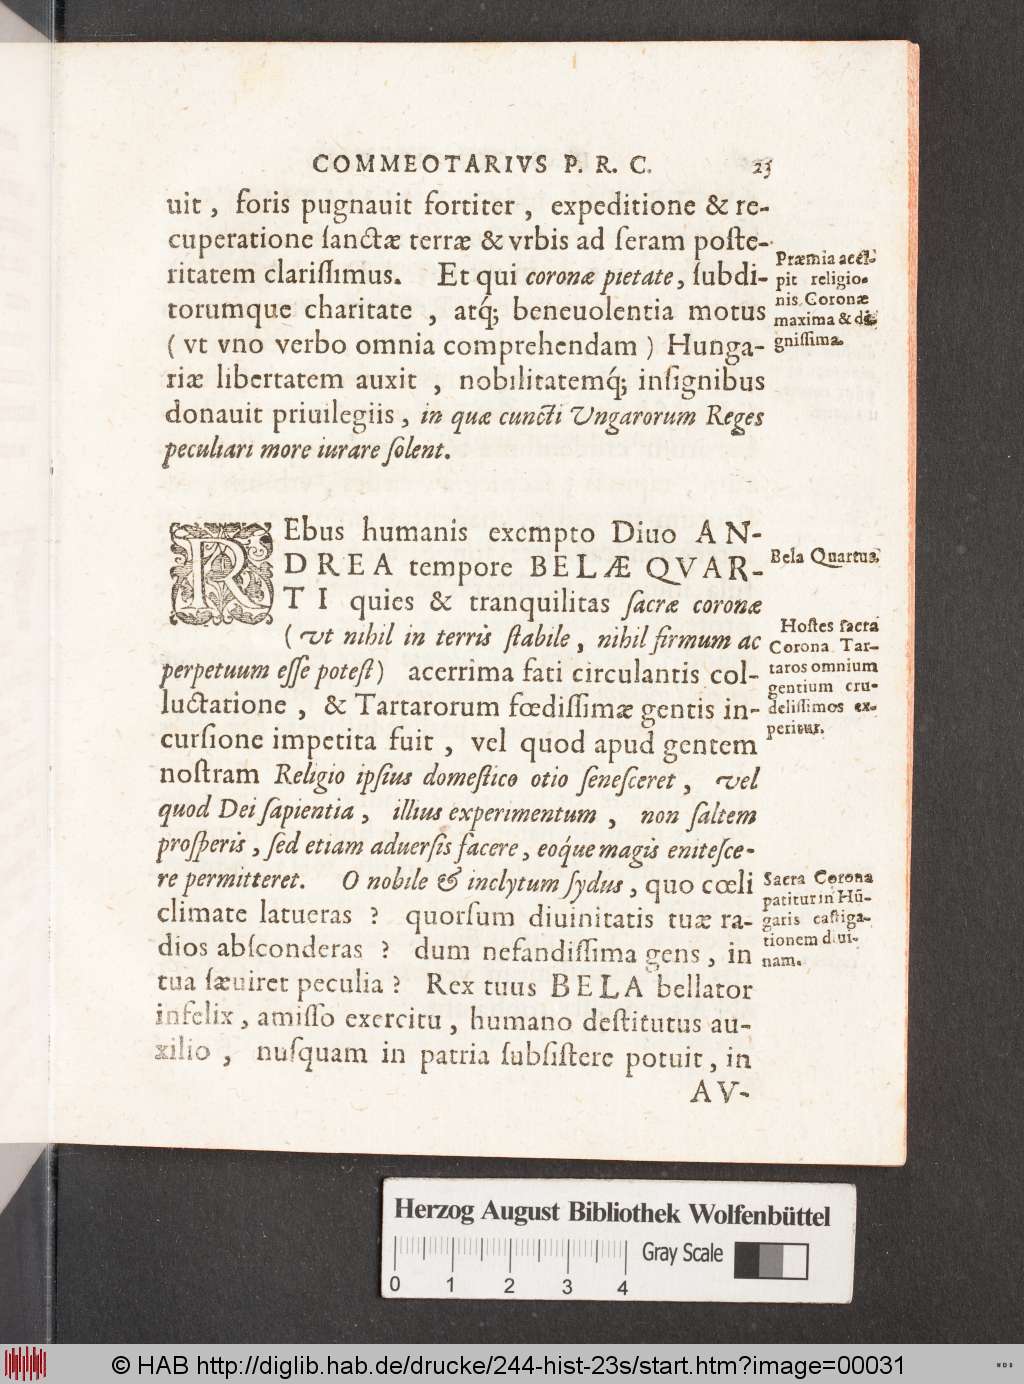 COMMEOTARIVS P. R. C. 23
uit, foris pugnauit fortiter, expeditione & re-
cuperatione ſanctæ terræ & vrbis ad ſeram poſte-
ritatem clariſſimus. Et qui coronæ pietate, ſubdi-
torumque charitate, atq́; beneuolentia motus
(vt vno verbo omnia comprehendam) Hunga-
riæ libertatem auxit, nobilitatemq́; inſignibus
donauit priuilegiis, in quæ cuncti Vngarorum Reges
peculiari more iurare ſolent.
Præmia accí-
pit religio-
nis Coronæ
maxima & di-
gniſſima.
REbus humanis exempto Diuo AN-
DREA tempore BELÆ QVAR-
TI quies & tranquilitas ſacræ coronæ
(vt nihil in terris ſtabile, nihil firmum ac
perpetuum eſſe poteſt) acerrima fati circulantis col-
luctatione, & Tartarorum fœdiſſimæ gentis in-
curſione impetita fuit, vel quod apud gentem
noſtram Religio ipſius domeſtico otio ſeneſceret, vel
quod Dei ſapientia, illius experimentum, non ſaltem
proſperis, ſed etiam aduerſis facere, eoq́ue magis eniteſce-
re permitteret. O nobile & inclytum ſydus, quo cœli
climate latueras? quorſum diuinitatis tuæ ra-
dios abſconderas? dum nefandiſſima gens, in
tua ſæuiret peculia? Rex tuus BELA bellator
infelix, amiſſo exercitu, humano deſtitutus au-
xilio, nuſquam in patria ſubſiſtere potuit, in
AV-
Bela Quartus,
Hoſtes ſacra
Corona Tar-
taros omnium
gentium cru-
deliſſimos ex-
peritur.
Sacra Corona
patitur in Hũ-
garis caſtiga-
tionem diui-
nam.
Herzog August Bibliothek Wolfenbüttel
Gray Scale
0 1 2 3 4
© HAB http://diglib.hab.de/drucke/244-hist-23s/start.htm?image=00031